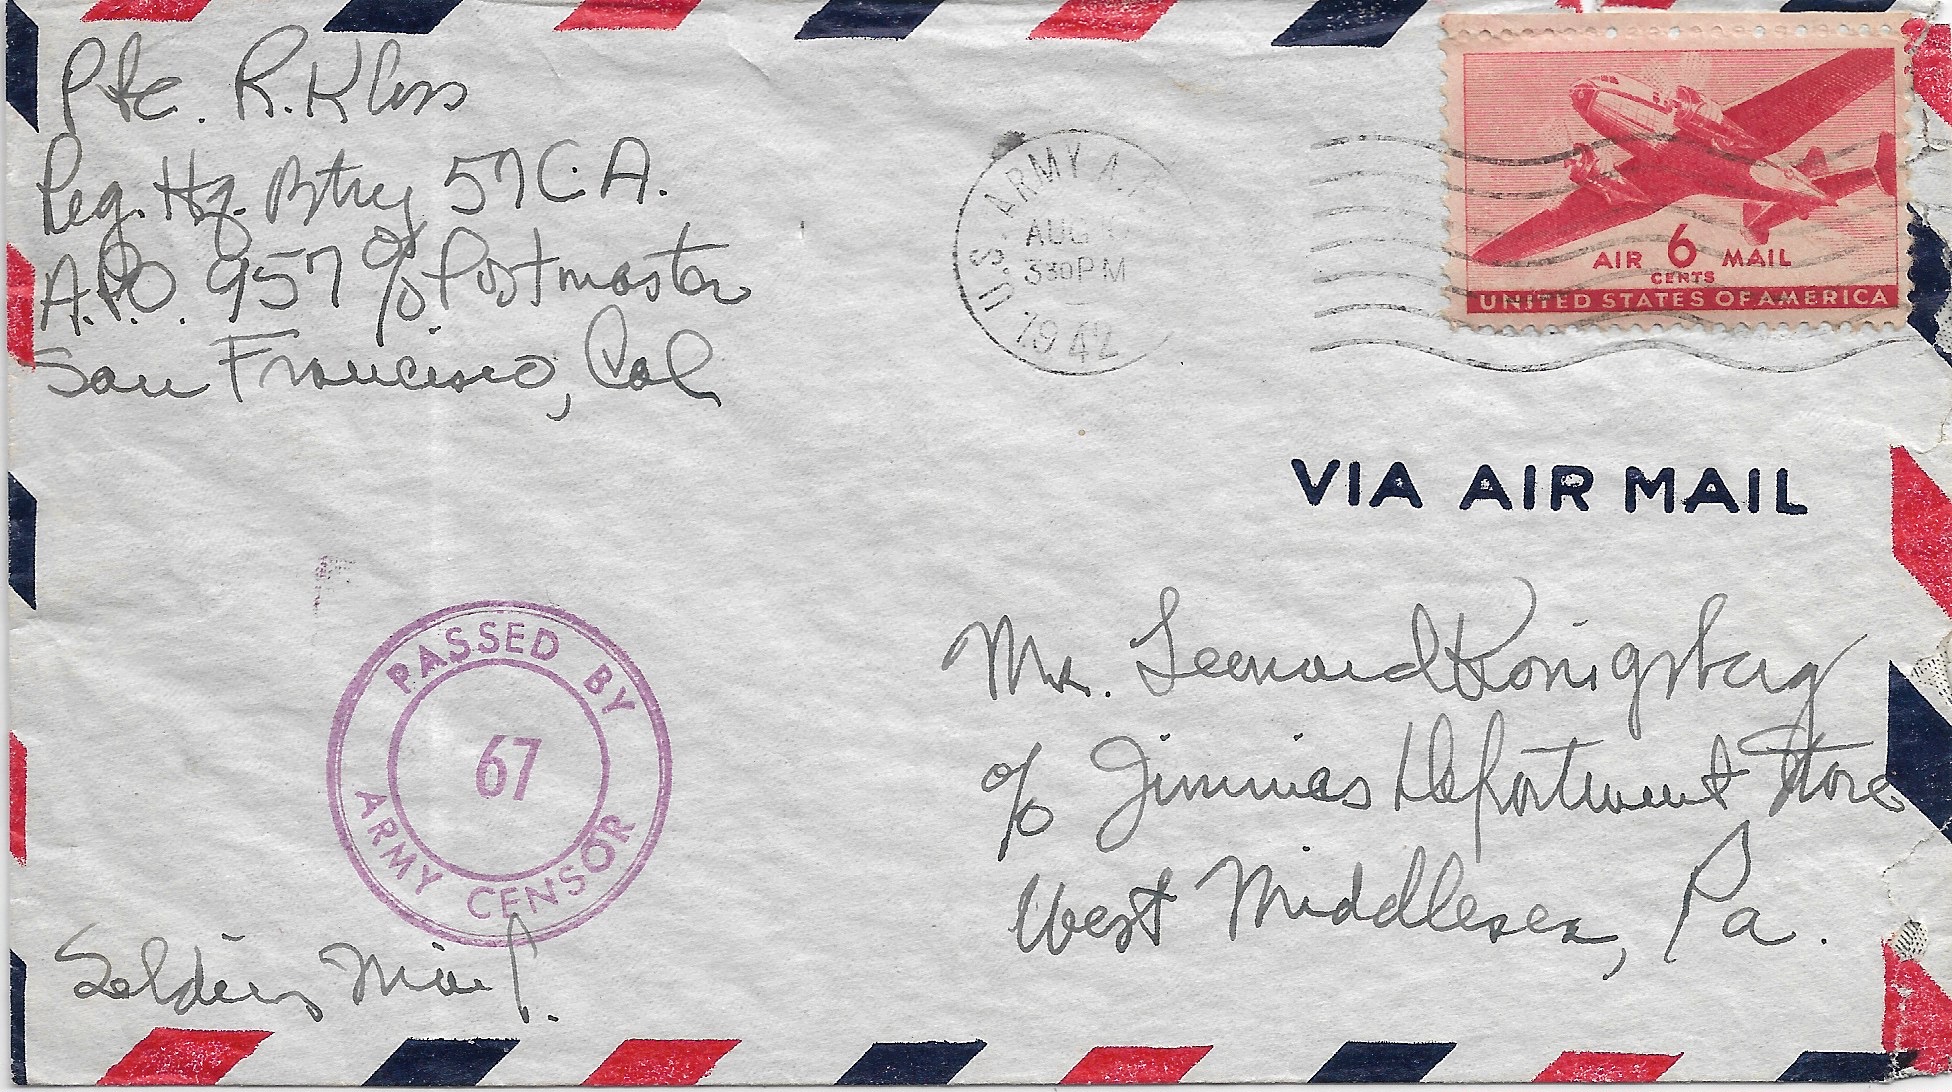 Pte. R. Kloss
Reg. Hq. Btry 57 C.A.
A.P.O. 957 c/o Postmaster
San Francisco, Cal
U.S. ARMY A.P.
AUG
330PM
1942
AIR 6 MAIL
CENTS
UNITED STATES OF AMERICA
VIA AIR MAIL
Mr. Leonard Konigsberg
c/o Jimmies Department Store
West Middlesex, Pa.
PASSED BY
67
ARMY CENSOR
Soldiers Mail.